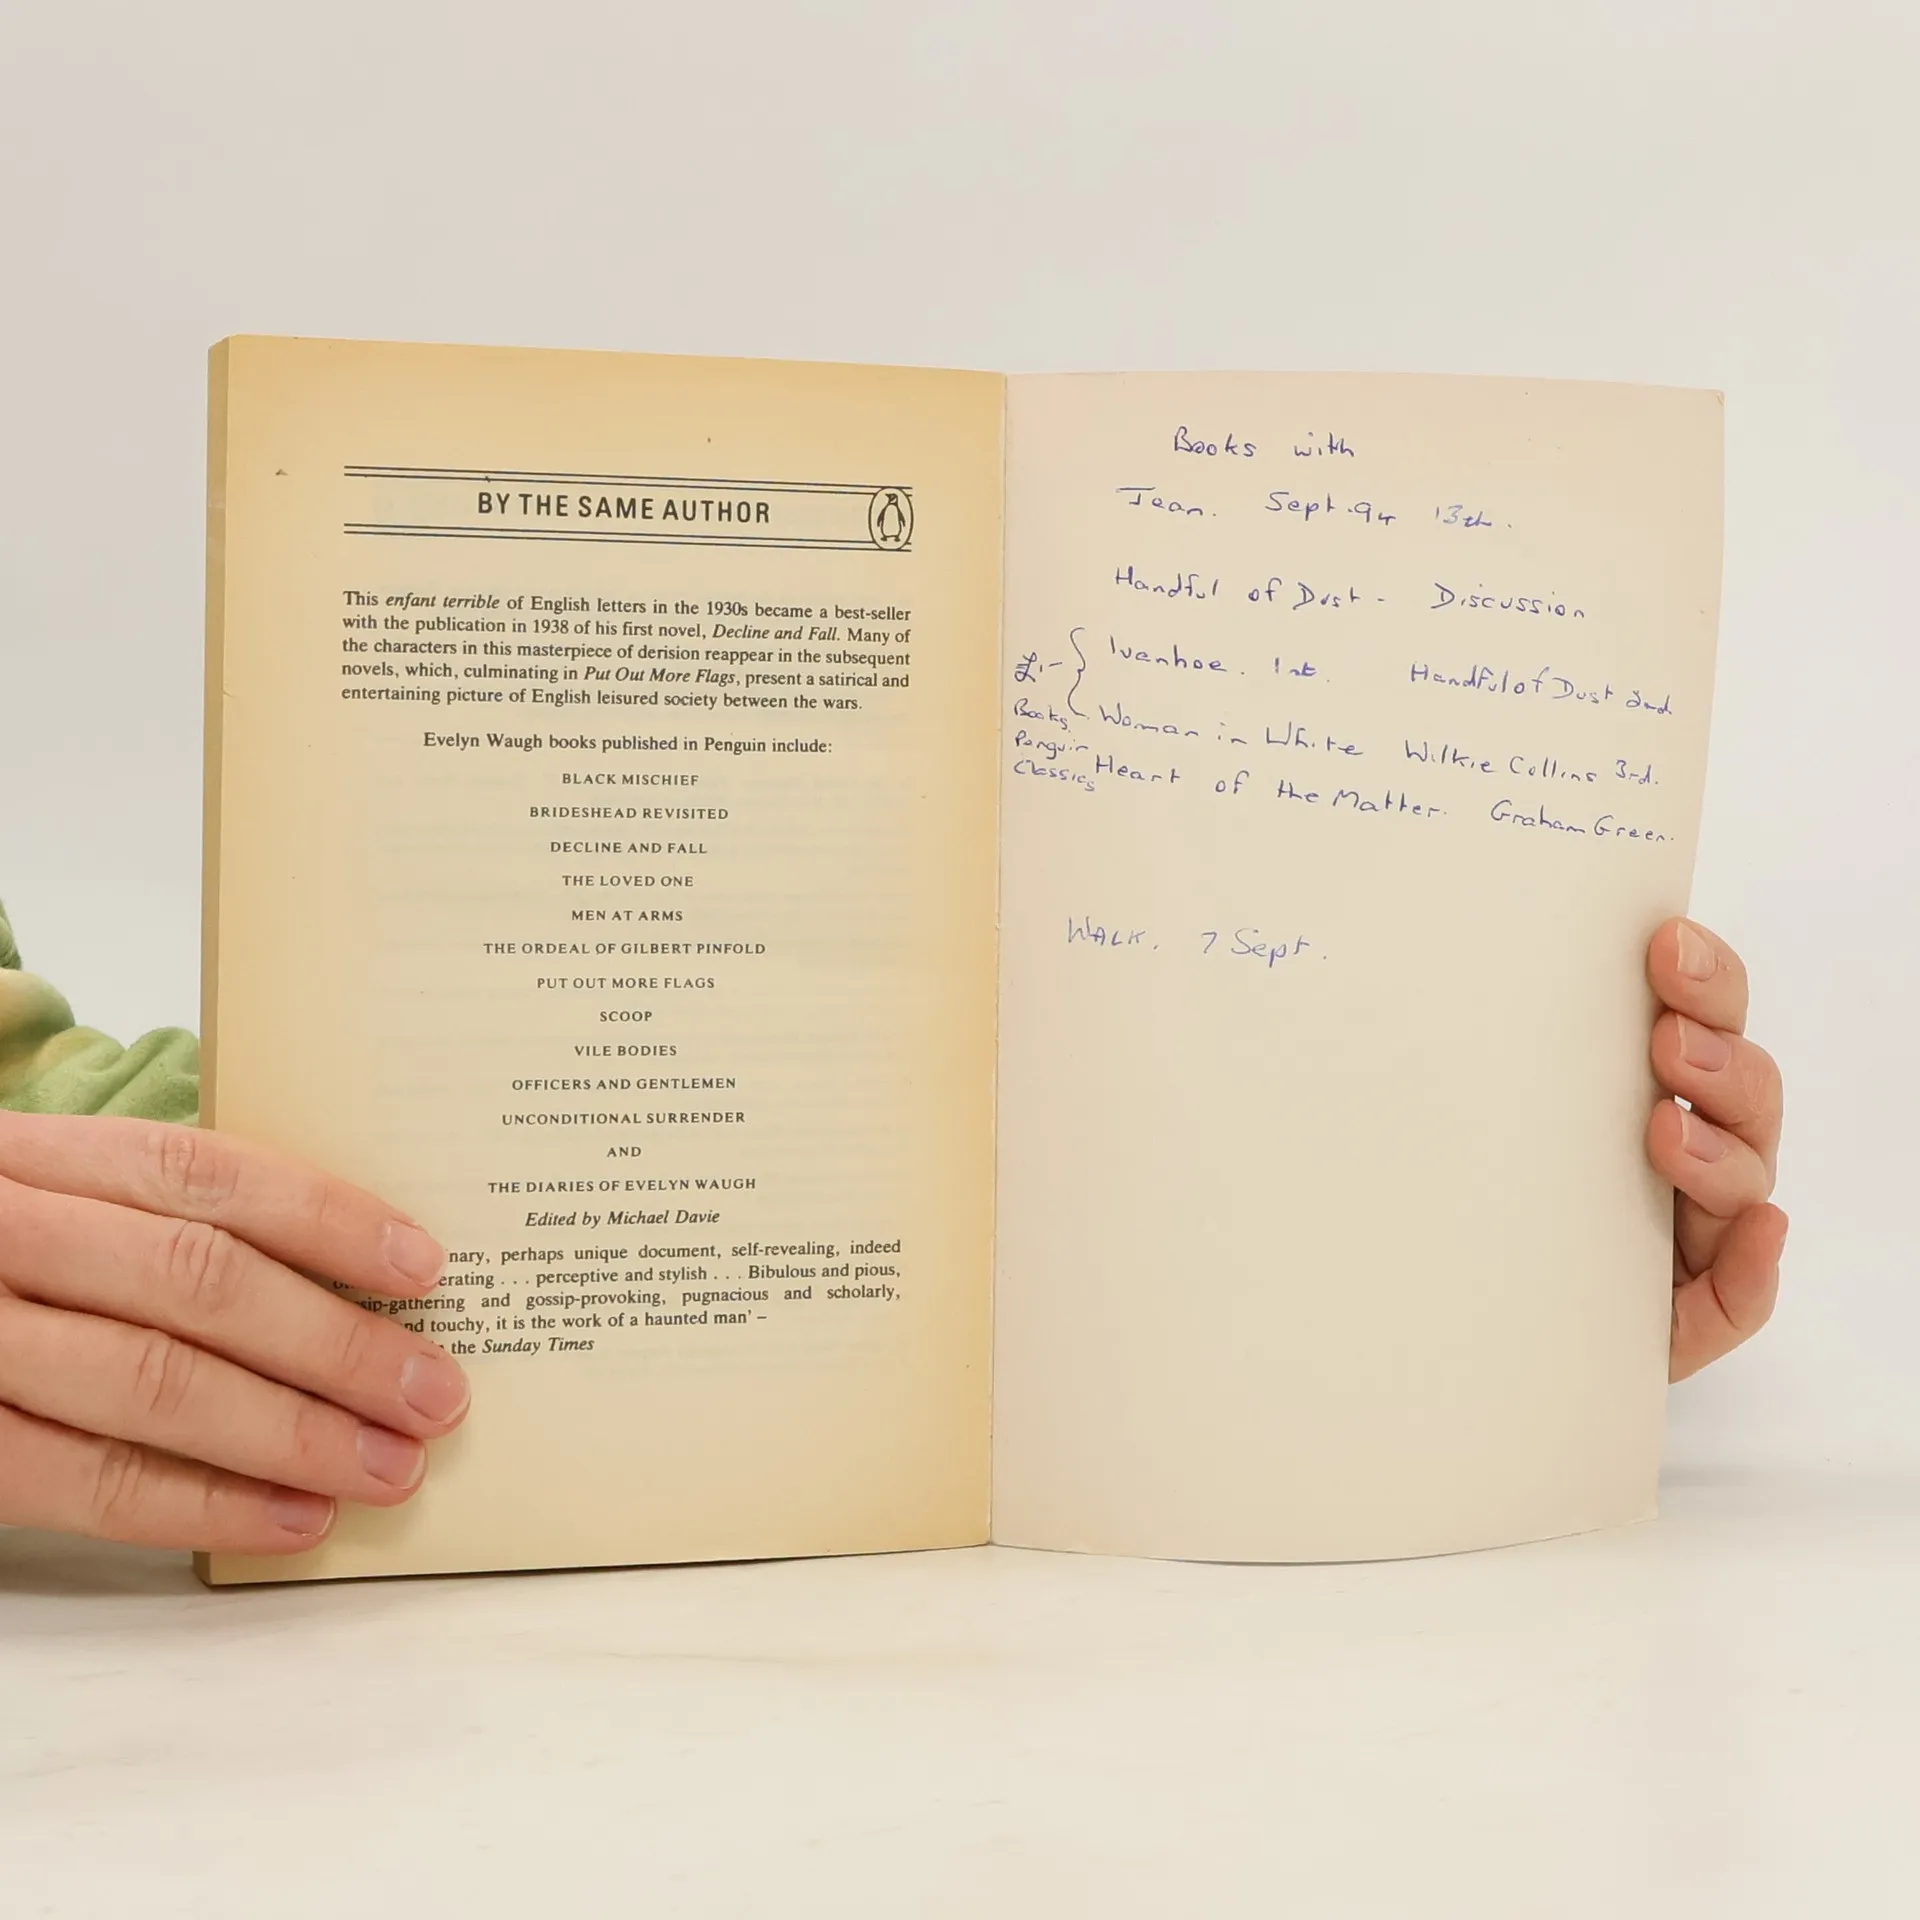 BY THE SAME AUTHOR
This enfant terrible of English letters in the 1930s became a best-seller
with the publication in 1938 of his first novel, Decline and Fall. Many of
the characters in this masterpiece of derision reappear in the subsequent
novels, which, culminating in Put Out More Flags, present a satirical and
entertaining picture of English leisured society between the wars.
Evelyn Waugh books published in Penguin include:
BLACK MISCHIEF
BRIDESHEAD REVISITED
DECLINE AND FALL
THE LOVED ONE
MEN AT ARMS
THE ORDEAL OF GILBERT PINFOLD
PUT OUT MORE FLAGS
SCOOP
VILE BODIES
OFFICERS AND GENTLEMEN
UNCONDITIONAL SURRENDER
AND
THE DIARIES OF EVELYN WAUGH
Edited by Michael Davie
perhaps unique document, self-revealing, indeed
. . . perceptive and stylish . . . Bibulous and pious,
and gossip-provoking, pugnacious and scholarly,
touchy, it is the work of a haunted man' –
the Sunday Times
Books with
Jean. Sept. 94 13th.
Handful of Dust - Discussion
£1-
Ivanhoe. 1st. Handful of Dust 2nd.
Books
Woman in White Wilkie Collins 3rd.
Penguin
Classics
Heart of the Matter. Graham Green.
WALK. 7 Sept.